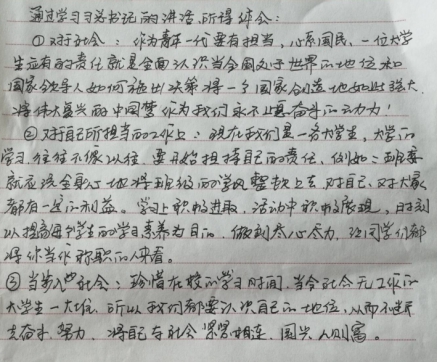 通过学习习总书记的讲话,所得体会:
①对于社会:作为青年一代要有担当,心系国民、一位大学
生应有的责任就是全面认识当今国处于世界的地位和
国家领导人如何施出决策将一个国家创造地如此强大.
将伟大复兴的中国梦作为我们永不止息奋斗的动力!
②对于自己所担当的工作上:现在我们是一名大学生,大学的
学习往往不像以往,要开始担待自己的责任,例如:班委
就应该全身心地将班级的学风整顿上去,对自己、对大家
都有一定的利益。学习上积极进取,活动中积极展现,时刻
以提高每个学生的学习素养为目的,做到尽心尽力,让同学们都
将你当作称职的人来看。
③当步入社会:珍惜在校的学习时间,当今社会无工作的
大学生一大堆,所以我们都要认识自己的地位,从而不断
去奋斗、努力,将自己与社会紧紧相连,国兴人则富。